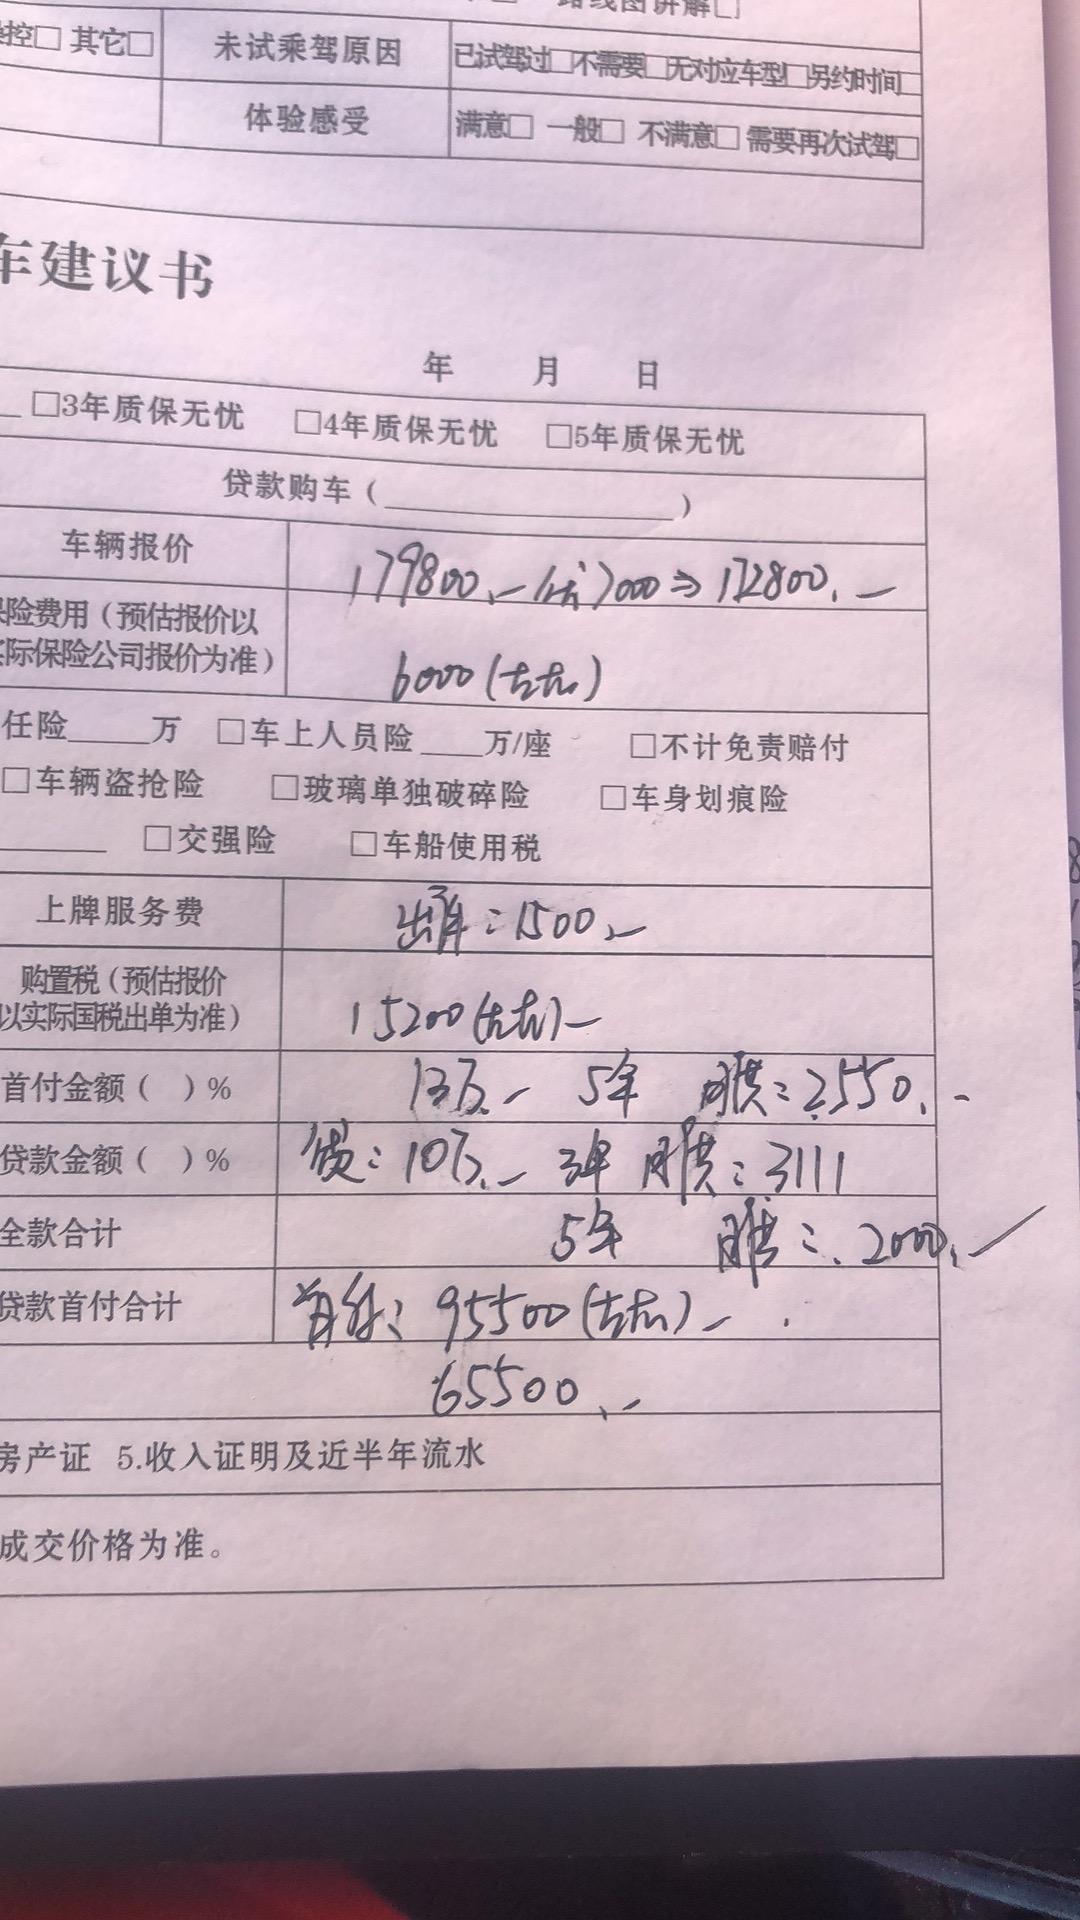 路线图讲解□
控□ 其它□ 未试乘驾原因 已试驾过□不需要□无对应车型□另约时间□
体验感受 满意□ 一般□ 不满意□ 需要再次试驾□
车建议书
年 月 日
□3年质保无忧 □4年质保无忧 □5年质保无忧
贷款购车（________）
车辆报价 179800.- 优7000⇒172800.-
险费用（预估报价以
实际保险公司报价为准） 6000(左右)
任险____万 □车上人员险____万/座 □不计免责赔付
□车辆盗抢险 □玻璃单独破碎险 □车身划痕险
□交强险 □车船使用税
上牌服务费 出库:1500.-
购置税（预估报价
以实际国税出单为准） 15200(左右)-
首付金额（ ）% 13万.- 5年 月供:2550.-
贷款金额（ ）% 贷:10万.- 3年 月供:3111
全款合计 5年 月供:2000.-
贷款首付合计 首付: 95500(左右)-
65500.-
房产证 5.收入证明及近半年流水
成交价格为准。